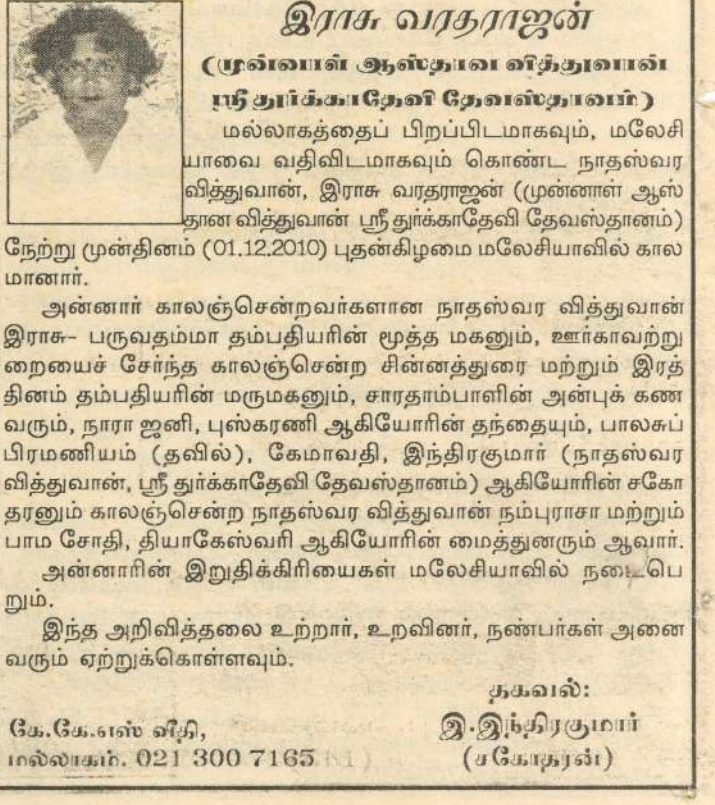 இராசு வரதராஜன்
(முன்னாள் ஆஸ்தான வித்துவான்
ஸ்ரீ துர்க்காதேவி தேவஸ்தானம்)
மல்லாகத்தைப் பிறப்பிடமாகவும், மலேசி
யாவை வதிவிடமாகவும் கொண்ட நாதஸ்வர
வித்துவான், இராசு வரதராஜன் (முன்னாள் ஆஸ்
தான வித்துவான் ஸ்ரீ துர்க்காதேவி தேவஸ்தானம்)
நேற்று முன்தினம் (01.12.2010) புதன்கிழமை மலேசியாவில் கால
மானார்.
அன்னார் காலஞ்சென்றவர்களான நாதஸ்வர வித்துவான்
இராசு- பருவதம்மா தம்பதியரின் மூத்த மகனும், ஊர்காவற்று
றையைச் சேர்ந்த காலஞ்சென்ற சின்னத்துரை மற்றும் இரத்
தினம் தம்பதியரின் மருமகனும், சாரதாம்பாளின் அன்புக் கண
வரும், நாரா ஜனி, புஸ்கரணி ஆகியோரின் தந்தையும், பாலசுப்
பிரமணியம் (தவில்), கேமாவதி, இந்திரகுமார் (நாதஸ்வர
வித்துவான், ஸ்ரீ துர்க்காதேவி தேவஸ்தானம்) ஆகியோரின் சகோ
தரனும் காலஞ்சென்ற நாதஸ்வர வித்துவான் நம்புராசா மற்றும்
பாம சோதி, தியாகேஸ்வரி ஆகியோரின் மைத்துனரும் ஆவார்.
அன்னாரின் இறுதிக்கிரியைகள் மலேசியாவில் நடைபெ
றும்.
இந்த அறிவித்தலை உற்றார், உறவினர், நண்பர்கள் அனை
வரும் ஏற்றுக்கொள்ளவும்.
தகவல்:
கே.கே.எஸ் வீதி, இ.இந்திரகுமார்
மல்லாகம். 021 300 7165 (சகோதரன்)